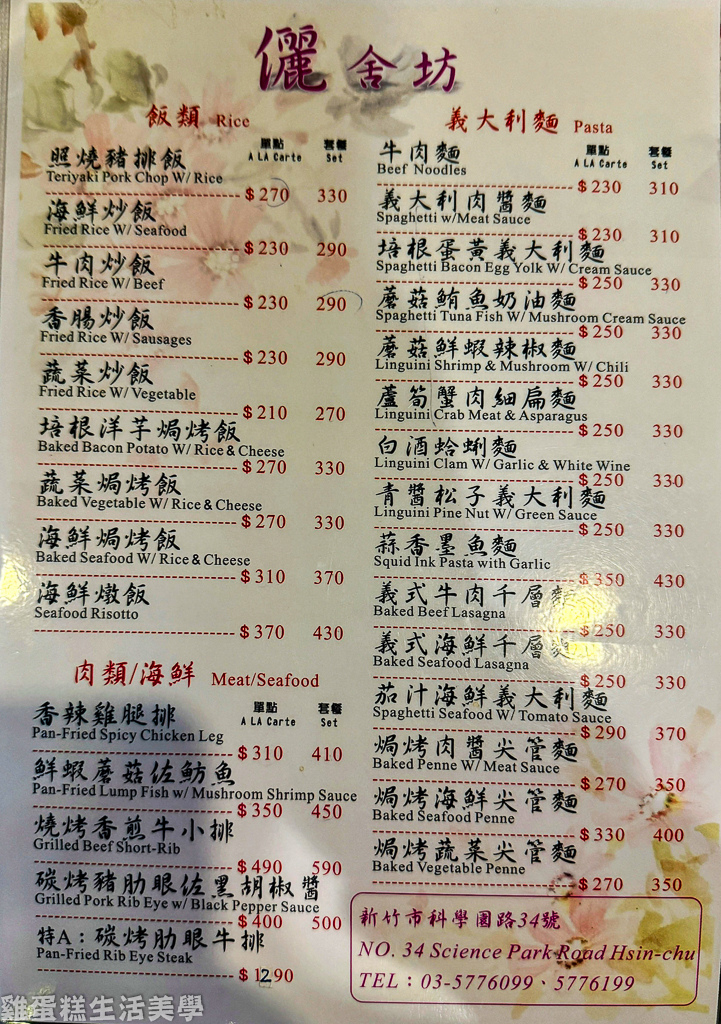 儷舍坊
飯類 Rice
單點 套餐
A LA Carte Set
照燒豬排飯
Teriyaki Pork Chop W/ Rice
$ 270 330
海鮮炒飯
Fried Rice W/ Seafood
$ 230 290
牛肉炒飯
Fried Rice W/ Beef
$ 230 290
香腸炒飯
Fried Rice W/ Sausages
$ 230 290
蔬菜炒飯
Fried Rice W/ Vegetable
$ 210 270
培根洋芋焗烤飯
Baked Bacon Potato W/ Rice & Cheese
$ 270 330
蔬菜焗烤飯
Baked Vegetable W/ Rice & Cheese
$ 270 330
海鮮焗烤飯
Baked Seafood W/ Rice & Cheese
$ 310 370
海鮮燉飯
Seafood Risotto
$ 370 430
肉類/海鮮 Meat/Seafood
單點 套餐
A LA Carte Set
香辣雞腿排
Pan-Fried Spicy Chicken Leg
$ 310 410
鮮蝦蘑菇佐魴魚
Pan-Fried Lump Fish w/ Mushroom Shrimp Sauce
$ 350 450
燒烤香煎牛小排
Grilled Beef Short-Rib
$ 490 590
碳烤豬肋眼佐黑胡椒醬
Grilled Pork Rib Eye w/ Black Pepper Sauce
$ 400 500
特A：碳烤肋眼牛排
Pan-Fried Rib Eye Steak
$ 1290
義大利麵 Pasta
單點 套餐
A LA Carte Set
牛肉麵
Beef Noodles
$ 230 310
義大利肉醬麵
Spaghetti w/Meat Sauce
$ 230 310
培根蛋黃義大利麵
Spaghetti Bacon Egg Yolk W/ Cream Sauce
$ 250 330
蘑菇鮪魚奶油麵
Spaghetti Tuna Fish W/ Mushroom Cream Sauce
$ 250 330
蘑菇鮮蝦辣椒麵
Linguini Shrimp & Mushroom W/ Chili
$ 250 330
蘆筍蟹肉細扁麵
Linguini Crab Meat & Asparagus
$ 250 330
白酒蛤蜊麵
Linguini Clam W/ Garlic & White Wine
$ 250 330
青醬松子義大利麵
Linguini Pine Nut W/ Green Sauce
$ 250 330
蒜香墨魚麵
Squid Ink Pasta with Garlic
$ 350 430
義式牛肉千層麵
Baked Beef Lasagna
$ 250 330
義式海鮮千層麵
Baked Seafood Lasagna
$ 250 330
茄汁海鮮義大利麵
Spaghetti Seafood W/ Tomato Sauce
$ 290 370
焗烤肉醬尖管麵
Baked Penne W/ Meat Sauce
$ 270 350
焗烤海鮮尖管麵
Baked Seafood Penne
$ 330 400
焗烤蔬菜尖管麵
Baked Vegetable Penne
$ 270 350
新竹市科學園路34號
NO. 34 Science Park Road Hsin-chu
TEL：03-5776099、5776199
雞蛋糕生活美學